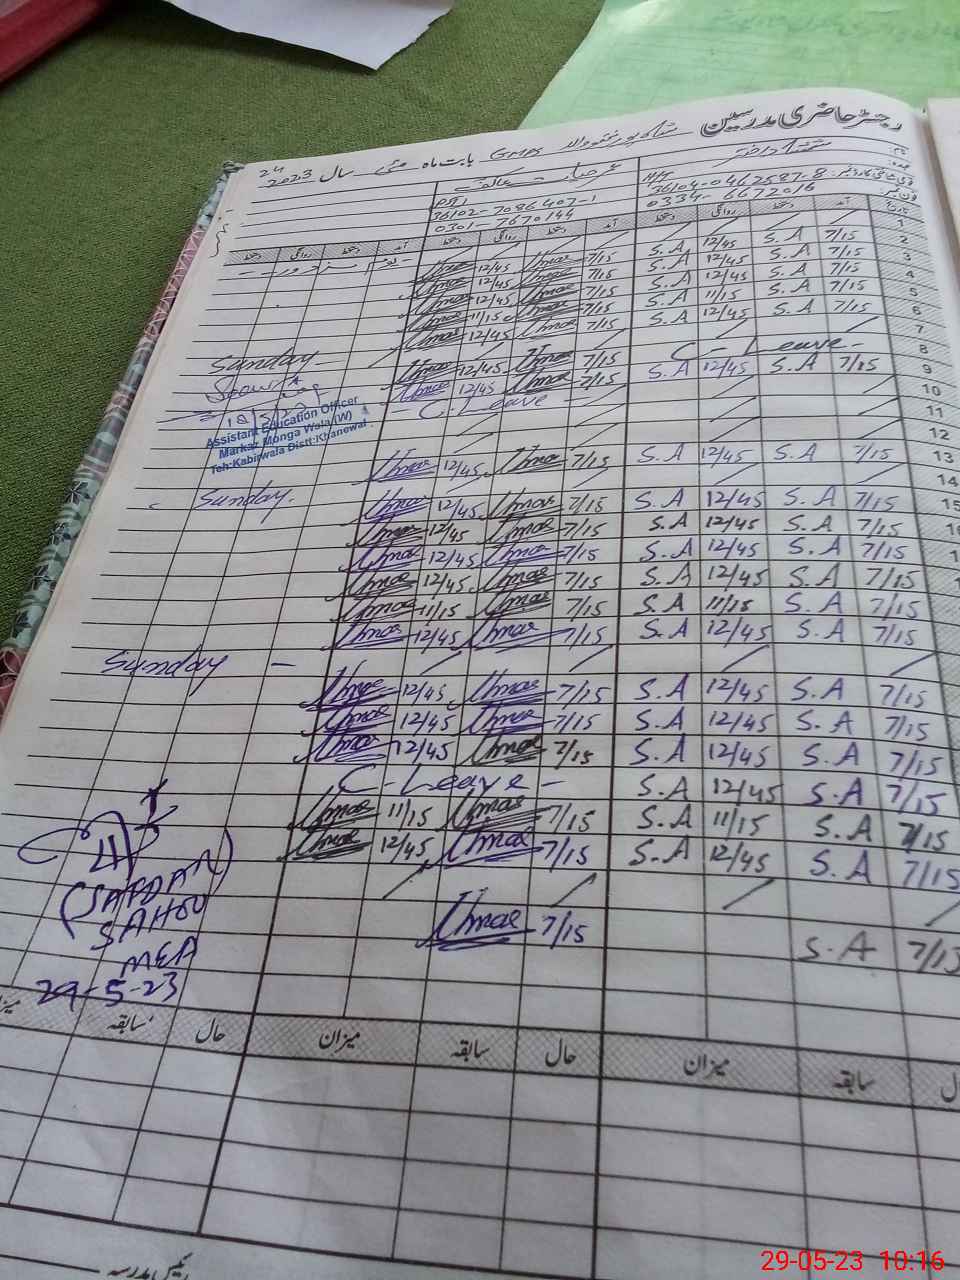 رجسٹر حاضری مدرسین
GMPS بابت ماہ مئی سال 2023
36104-0462587-8
0334-6672016
36102-7086407-1
0301-7670144
تاریخ آمد دستخط روانگی دستخط آمد دستخط روانگی دستخط آمد دستخط روانگی دستخط
1
2 7/15 S.A 12/45 S.A 7/15 Umar 12/45 Umar
3 7/15 S.A 12/45 S.A 7/15 Umar 12/45 Umar
4 7/15 S.A 12/45 S.A 7/15 Umar 12/45 Umar
5 7/15 S.A 11/15 S.A 7/15 Umar 11/15 Umar
6 7/15 S.A 12/45 S.A 7/15 Umar 12/45 Umar
7 Sunday
8 C-Leave 7/15 Umar 12/45 Umar
9 7/15 S.A 12/45 S.A 7/15 Umar 12/45 Umar
10 C. Leave
11
12
Assistant Education Officer
Markaz Monga Wala (W)
Teh:Kabirwala Distt:Khanewal
13 7/15 S.A 12/45 S.A 7/15 Umar 12/45 Umar
14 Sunday.
15 7/15 S.A 12/45 S.A 7/15 Umar 12/45 Umar
7/15 S.A 12/45 S.A 7/15 Umar 12/45 Umar
7/15 S.A 12/45 S.A 7/15 Umar 12/45 Umar
7/15 S.A 12/45 S.A 7/15 Umar 12/45 Umar
7/15 S.A 11/15 S.A 7/15 Umar 11/15 Umar
7/15 S.A 12/45 S.A 7/15 Umar 12/45 Umar
Sunday -
7/15 S.A 12/45 S.A 7/15 Umar 12/45 Umar
7/15 S.A 12/45 S.A 7/15 Umar 12/45 Umar
7/15 S.A 12/45 S.A 7/15 Umar 12/45 Umar
7/15 S.A 12/45 S.A C-Leave -
7/15 S.A 11/15 S.A 7/15 Umar 11/15 Umar
7/15 S.A 12/45 S.A 7/15 Umar 12/45 Umar
7/15 S.A 7/15 Umar
(SAFDAR
SAHOO)
MEA
29-5-23
حال سابقہ میزان حال سابقہ میزان حال سابقہ میزان
رئیس مدرسہ
29-05-23 10:16